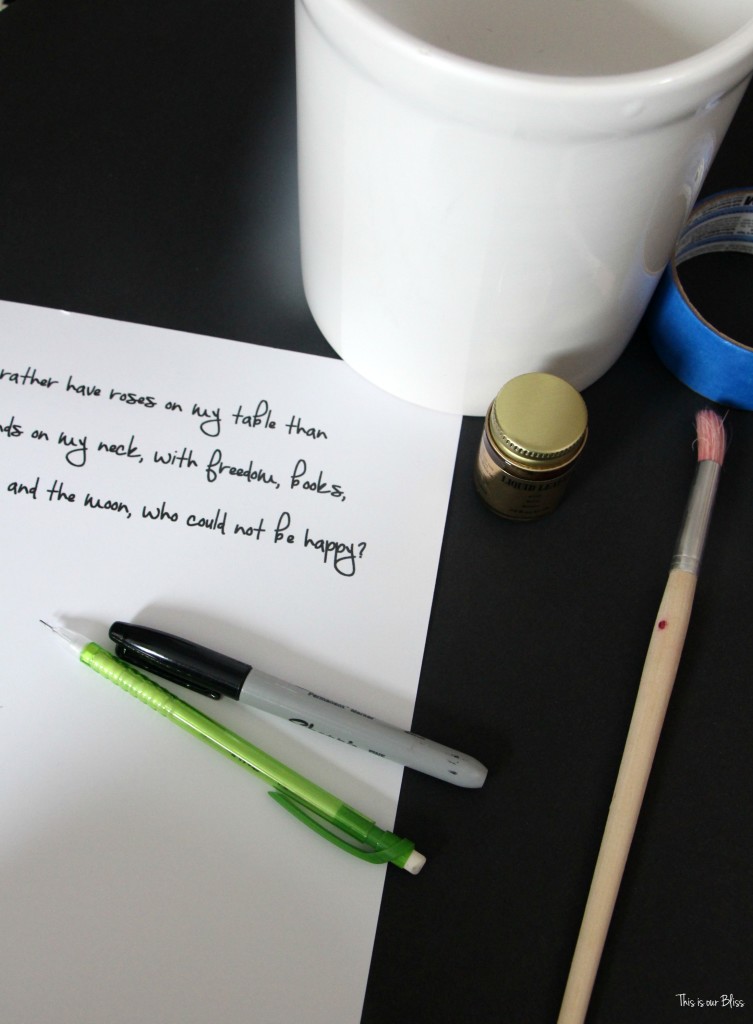 rather have roses on my table than
nds on my neck, with freedom, books,
and the moon, who could not be happy?
LIQUID LEAF
Permanent Marker
Sharpie
This is our Bliss